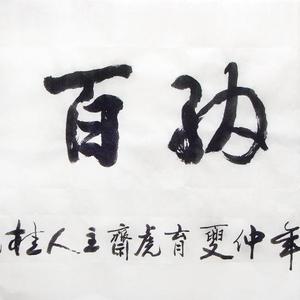 納百
年仲夏育虎齋主人桂